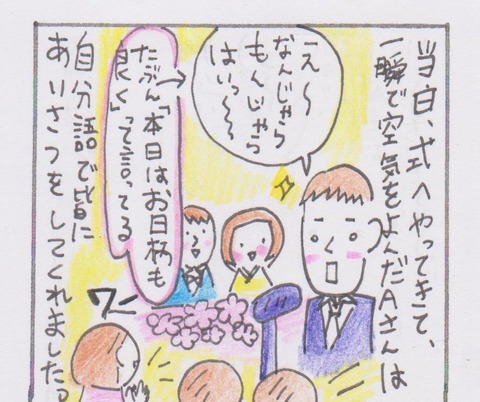 当日、式へやってきて、
一瞬で空気をよんだAさんは
え〜
なんじゃら
もんじゃら
はいっ〜〜
たぶん「本日はお日柄も
良く」って言ってる
自分語で皆に
あいさつをしてくれました。
ワー